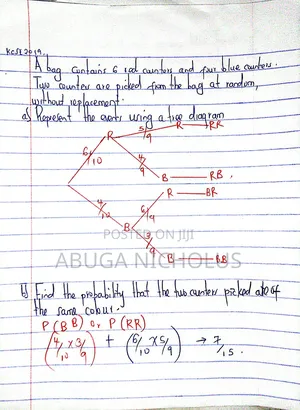 KCSE 2019.
A bag contains 6 red counters and four blue counters.
Two counters are picked from the bag at random,
without replacement.
a) Represent the events using a tree diagram
R 5/9 R RR
6/10
4/9
B RB
R BR
4/10 6/9
B
3/9 B BB
POSTED ON JIJI
ABUGA NICHOLUS
b) Find the probability that the two counters picked are of
the same colour.
P(BB) or P(RR)
(4/10 x 3/9) + (6/10 x 5/9) → 7/15.